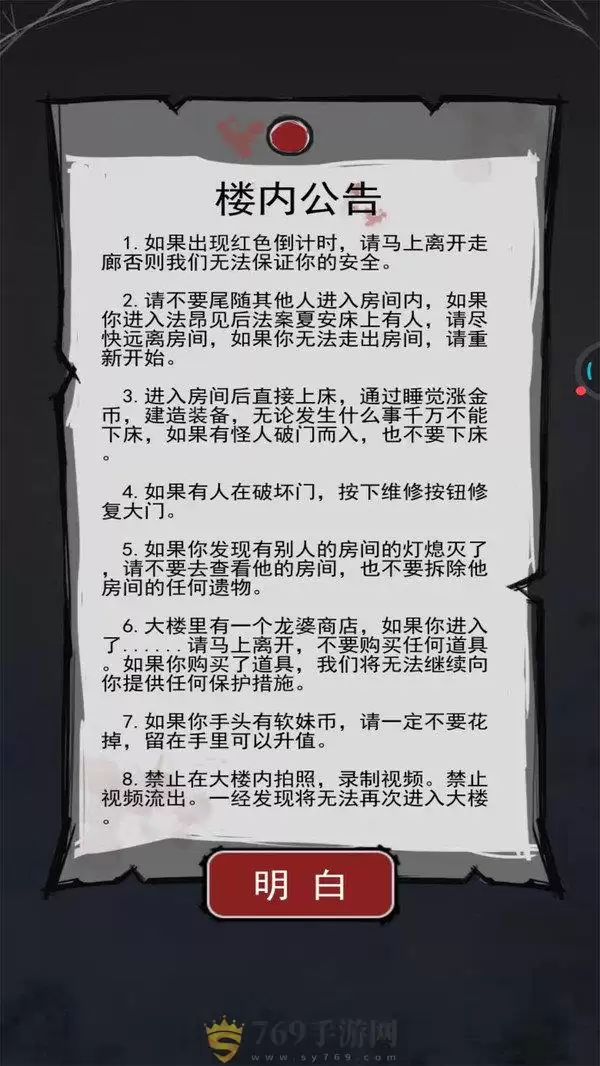 楼内公告
1.如果出现红色倒计时，请马上离开走
廊否则我们无法保证你的安全。
2.请不要尾随其他人进入房间内，如果
你进入法昂见后法案夏安床上有人，请尽
快远离房间，如果你无法走出房间，请重
新开始。
3.进入房间后直接上床，通过睡觉涨金
币，建造装备，无论发生什么事千万不能
下床，如果有怪人破门而入，也不要下床
。
4.如果有人在破坏门，按下维修按钮修
复大门。
5.如果你发现有别人的房间的灯熄灭了
，请不要去查看他的房间，也不要拆除他
房间的任何遗物。
6.大楼里有一个龙婆商店，如果你进入
了......请马上离开，不要购买任何道具
。如果你购买了道具，我们将无法继续向
你提供任何保护措施。
7.如果你手头有软妹币，请一定不要花
掉，留在手里可以升值。
8.禁止在大楼内拍照，录制视频。禁止
视频流出。一经发现将无法再次进入大楼
。
明白
769手游网
www.sy769.com